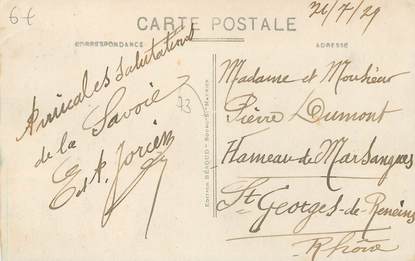 6€
CARTE POSTALE
26/7/29
CORRESPONDANCE
ADRESSE
Amicales salutations
de la Savoie
E et A.
73
EDITION BÉROUD
Madame et Monsieur
Pierre Dumont
Hameau de Marsangues
St Georges-de-Reneins
Rhône